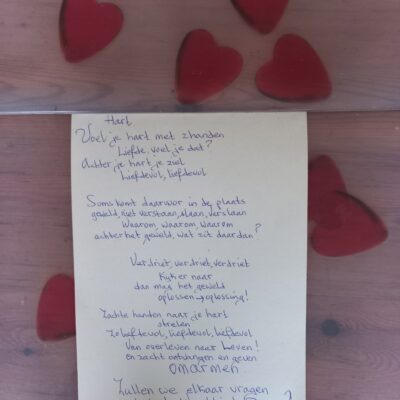 Hart
Voel je hart met 2 handen
Liefde, voel je dat?
Achter je hart, je ziel
Liefdevol, liefdevol
Soms komt daarvoor in de plaats
geweld, niet verstaan, slaan, verslaan
Waarom, waarom, waarom
achter het geweld, wat zit daar dan?
Verdriet, verdriet, verdriet
Kijk er naar
dan mag het geweld
oplossen → oplossing!
Zachte handen naar je hart
strelen
Zo liefdevol, liefdevol, liefdevol
Van overleven naar Leven!
En zacht ontvangen en geven
omarmen
Zullen we elkaar vragen